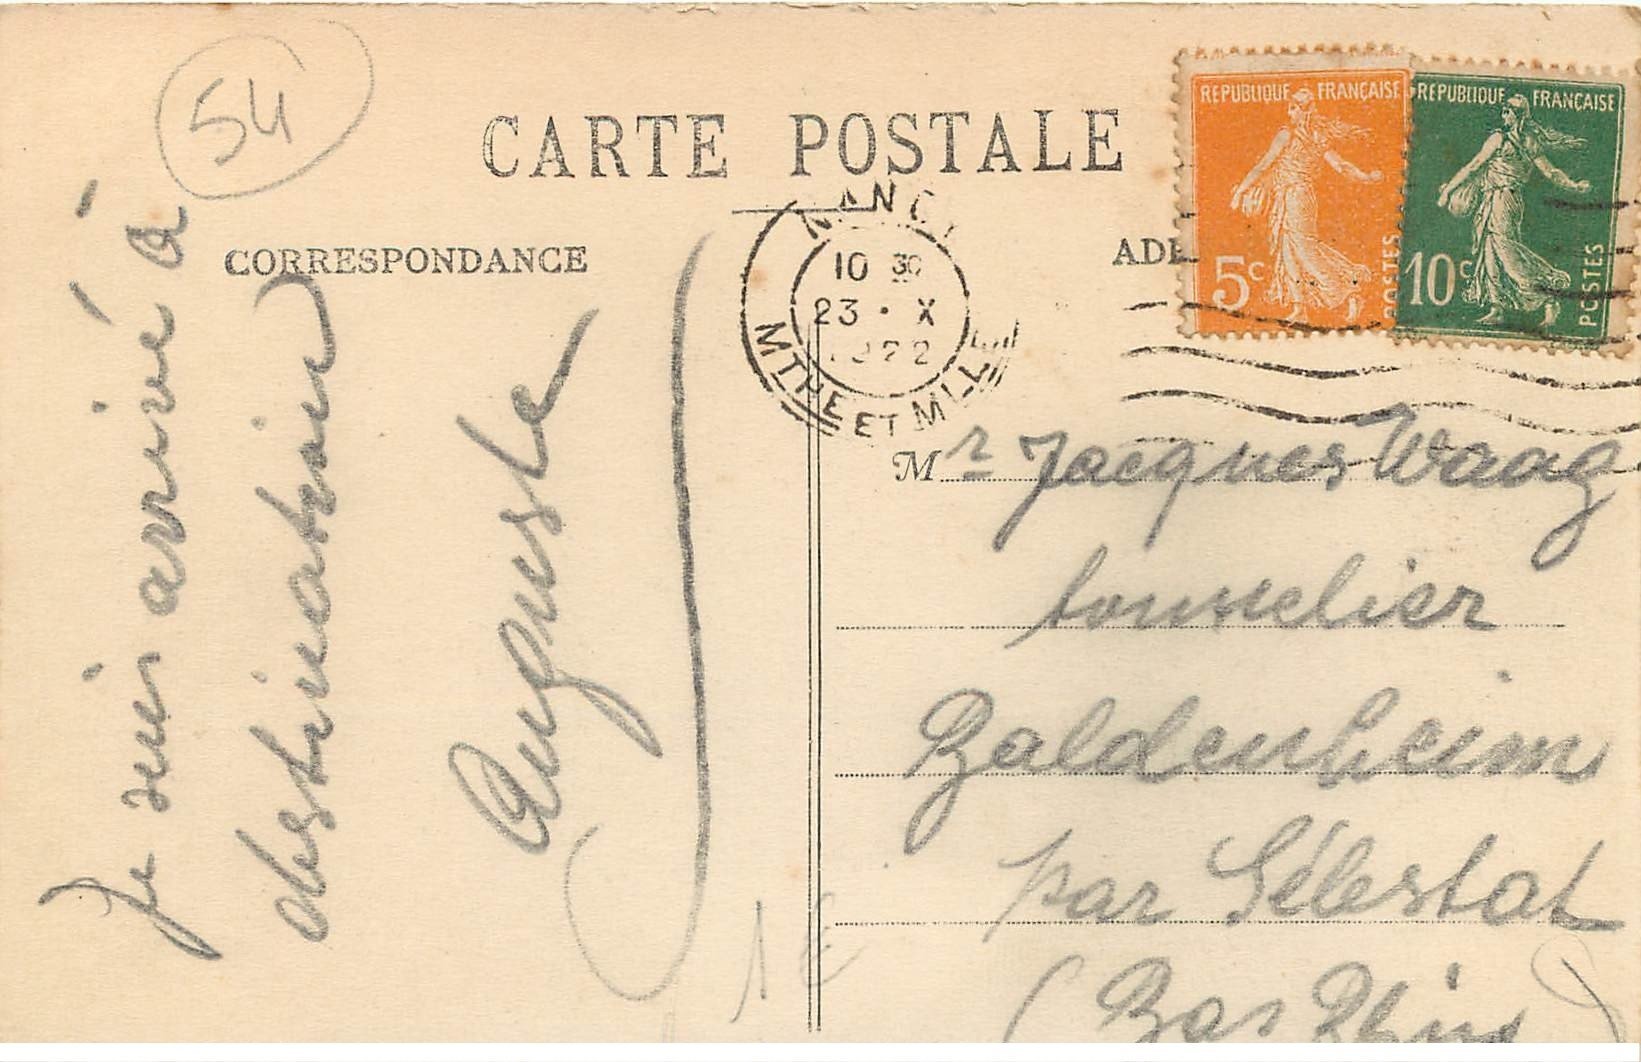 54
CARTE POSTALE
CORRESPONDANCE
Je suis arrivé à
destination
Auguste
1 €
NANCY
10 30
23 · X
1922
MTHE ET MLLE
REPUBLIQUE FRANÇAISE
5c
POSTES
REPUBLIQUE FRANÇAISE
10c
POSTES
Mr Jacques Waag
tonnelier
Baldenheim
par Sélestat
(Bas Rhin)